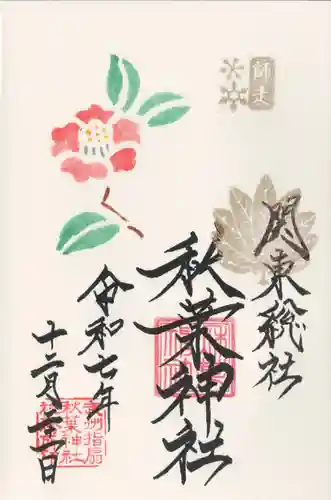 師走
関東総社
秋葉神社
令和七年
十二月 日
武州指扇
秋葉神社